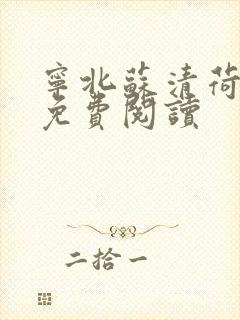 寧北蘇清荷
免費閱讀
二拾一